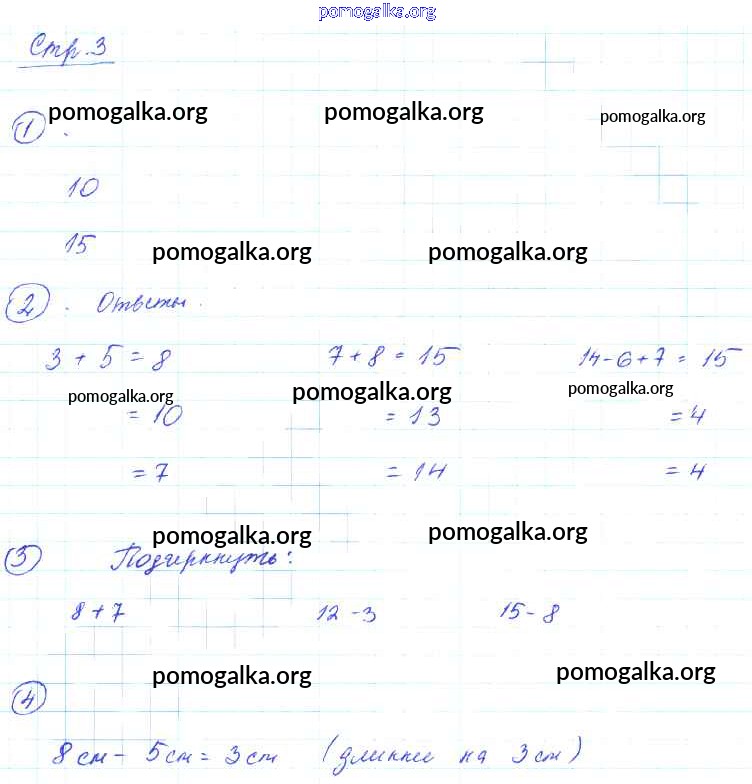 pomogalka.org
Стр. 3
pomogalka.org pomogalka.org pomogalka.org
1 .
10
15
pomogalka.org pomogalka.org
2 . Ответы.
3 + 5 = 8 7 + 8 = 15 14 - 6 + 7 = 15
pomogalka.org pomogalka.org pomogalka.org
= 10 = 13 = 4
= 7 = 14 = 4
pomogalka.org pomogalka.org
3 Подчеркнуть:
8 + 7 12 - 3 15 - 8
pomogalka.org pomogalka.org
4
8 см - 5 см = 3 см (длиннее на 3 см)